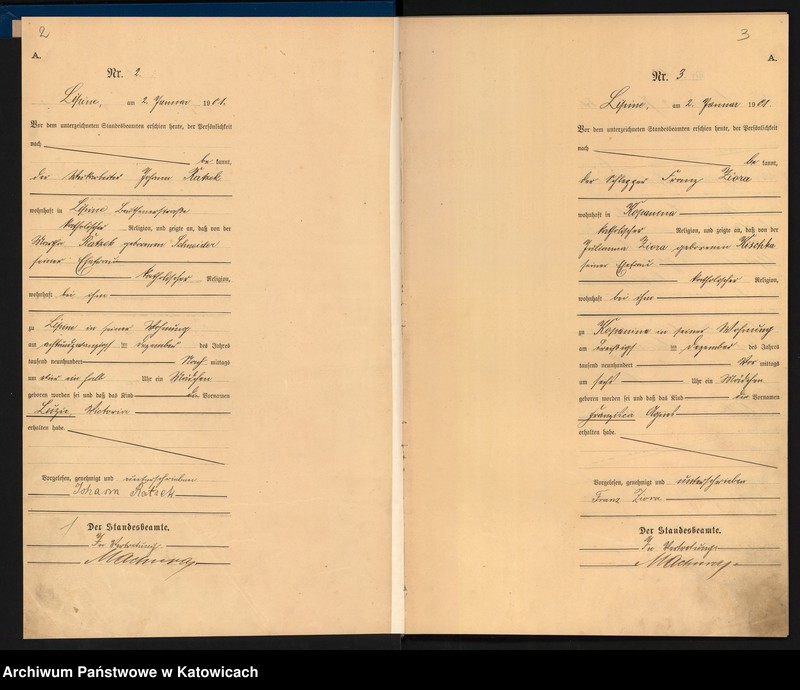 2
A.
Nr. 2.
Lipine, am 2. Januar 1901.
Vor dem unterzeichneten Standesbeamten erschien heute, der Persönlichkeit
nach
be kannt,
der Johann Ratzek
wohnhaft in Lipine
katholischer Religion, und zeigte an, daß von der
Ratzek geborenen Schneider
seiner Ehefrau
katholischer Religion,
wohnhaft bei ihm
zu Lipine in seiner Wohnung
am achtundzwanzigsten Dezember des Jahres
tausend neunhundert Nach mittags
um ein halb Uhr ein Mädchen
geboren worden sei und daß das Kind die Vornamen
Luzie, Victoria
erhalten habe.
Vorgelesen, genehmigt und unterschrieben
Johann Ratzek
Der Standesbeamte.
In Vertretung.
3
A.
Nr. 3
Lipine, am 2. Januar 1901.
Vor dem unterzeichneten Standesbeamten erschien heute, der Persönlichkeit
nach
be kannt,
der Schlepper Franz Ziora
wohnhaft in Kopanina
katholischer Religion, und zeigte an, daß von der
Julianna Ziora geborenen
seiner Ehefrau
katholischer Religion,
wohnhaft bei ihm
zu Kopanina in seiner Wohnung
am Dezember des Jahres
tausend neunhundert Vor mittags
um sechs Uhr ein Mädchen
geboren worden sei und daß das Kind die Vornamen
erhalten habe.
Vorgelesen, genehmigt und unterschrieben
Franz Ziora
Der Standesbeamte.
In Vertretung.
Archiwum Państwowe w Katowicach